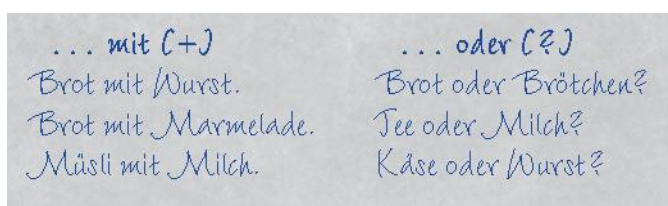 ... mit (+)
Brot mit Wurst.
Brot mit Marmelade.
Müsli mit Milch.
... oder (?)
Brot oder Brötchen?
Tee oder Milch?
Käse oder Wurst?